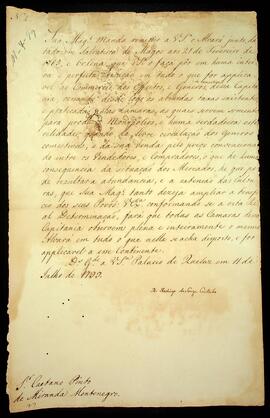 Sua Mag.e Manda remetter a V.S.a o Alvará junto, da-
tado em Salvaterra de Magos aos 21 de Fevereiro de
e ordena que V.S.a o faça pôr em huma inteira
e perfeita execução em tudo o que for applicavel
ao Commercio dos Effeitos, e Generos dessa Capita-
nia
praticadas, das quaes servem somente
para Monopolios, e huma verdadeira este-
rilidade, quando da livre circulação dos Generos
comestiveis, e da sua venda pelo preço convenciona-
do entre os Vendedores, e Compradores, o que he huma
consequencia da situação dos Mercados, he que po-
de rezultar a abundancia, e a extensão das Cultu-
ras, que Sua Mag.e tanto dezeja ampliar a benefi-
cio dos seus Povos. V.S.a conformando-se a esta Re-
al Determinação, fará que todas as Camaras dessa
Capitania observem plena e inteiramente o mesmo
Alvara em tudo o que nelle se acha disposto, e for
applicavel a esse Continente.
D.s G.de a V.S.a Palacio de Queluz em 11 de
Julho de 1799.
D. Rodrigo de Souza Coutinho
S.r Caetano Pinto
de Miranda Montenegro.